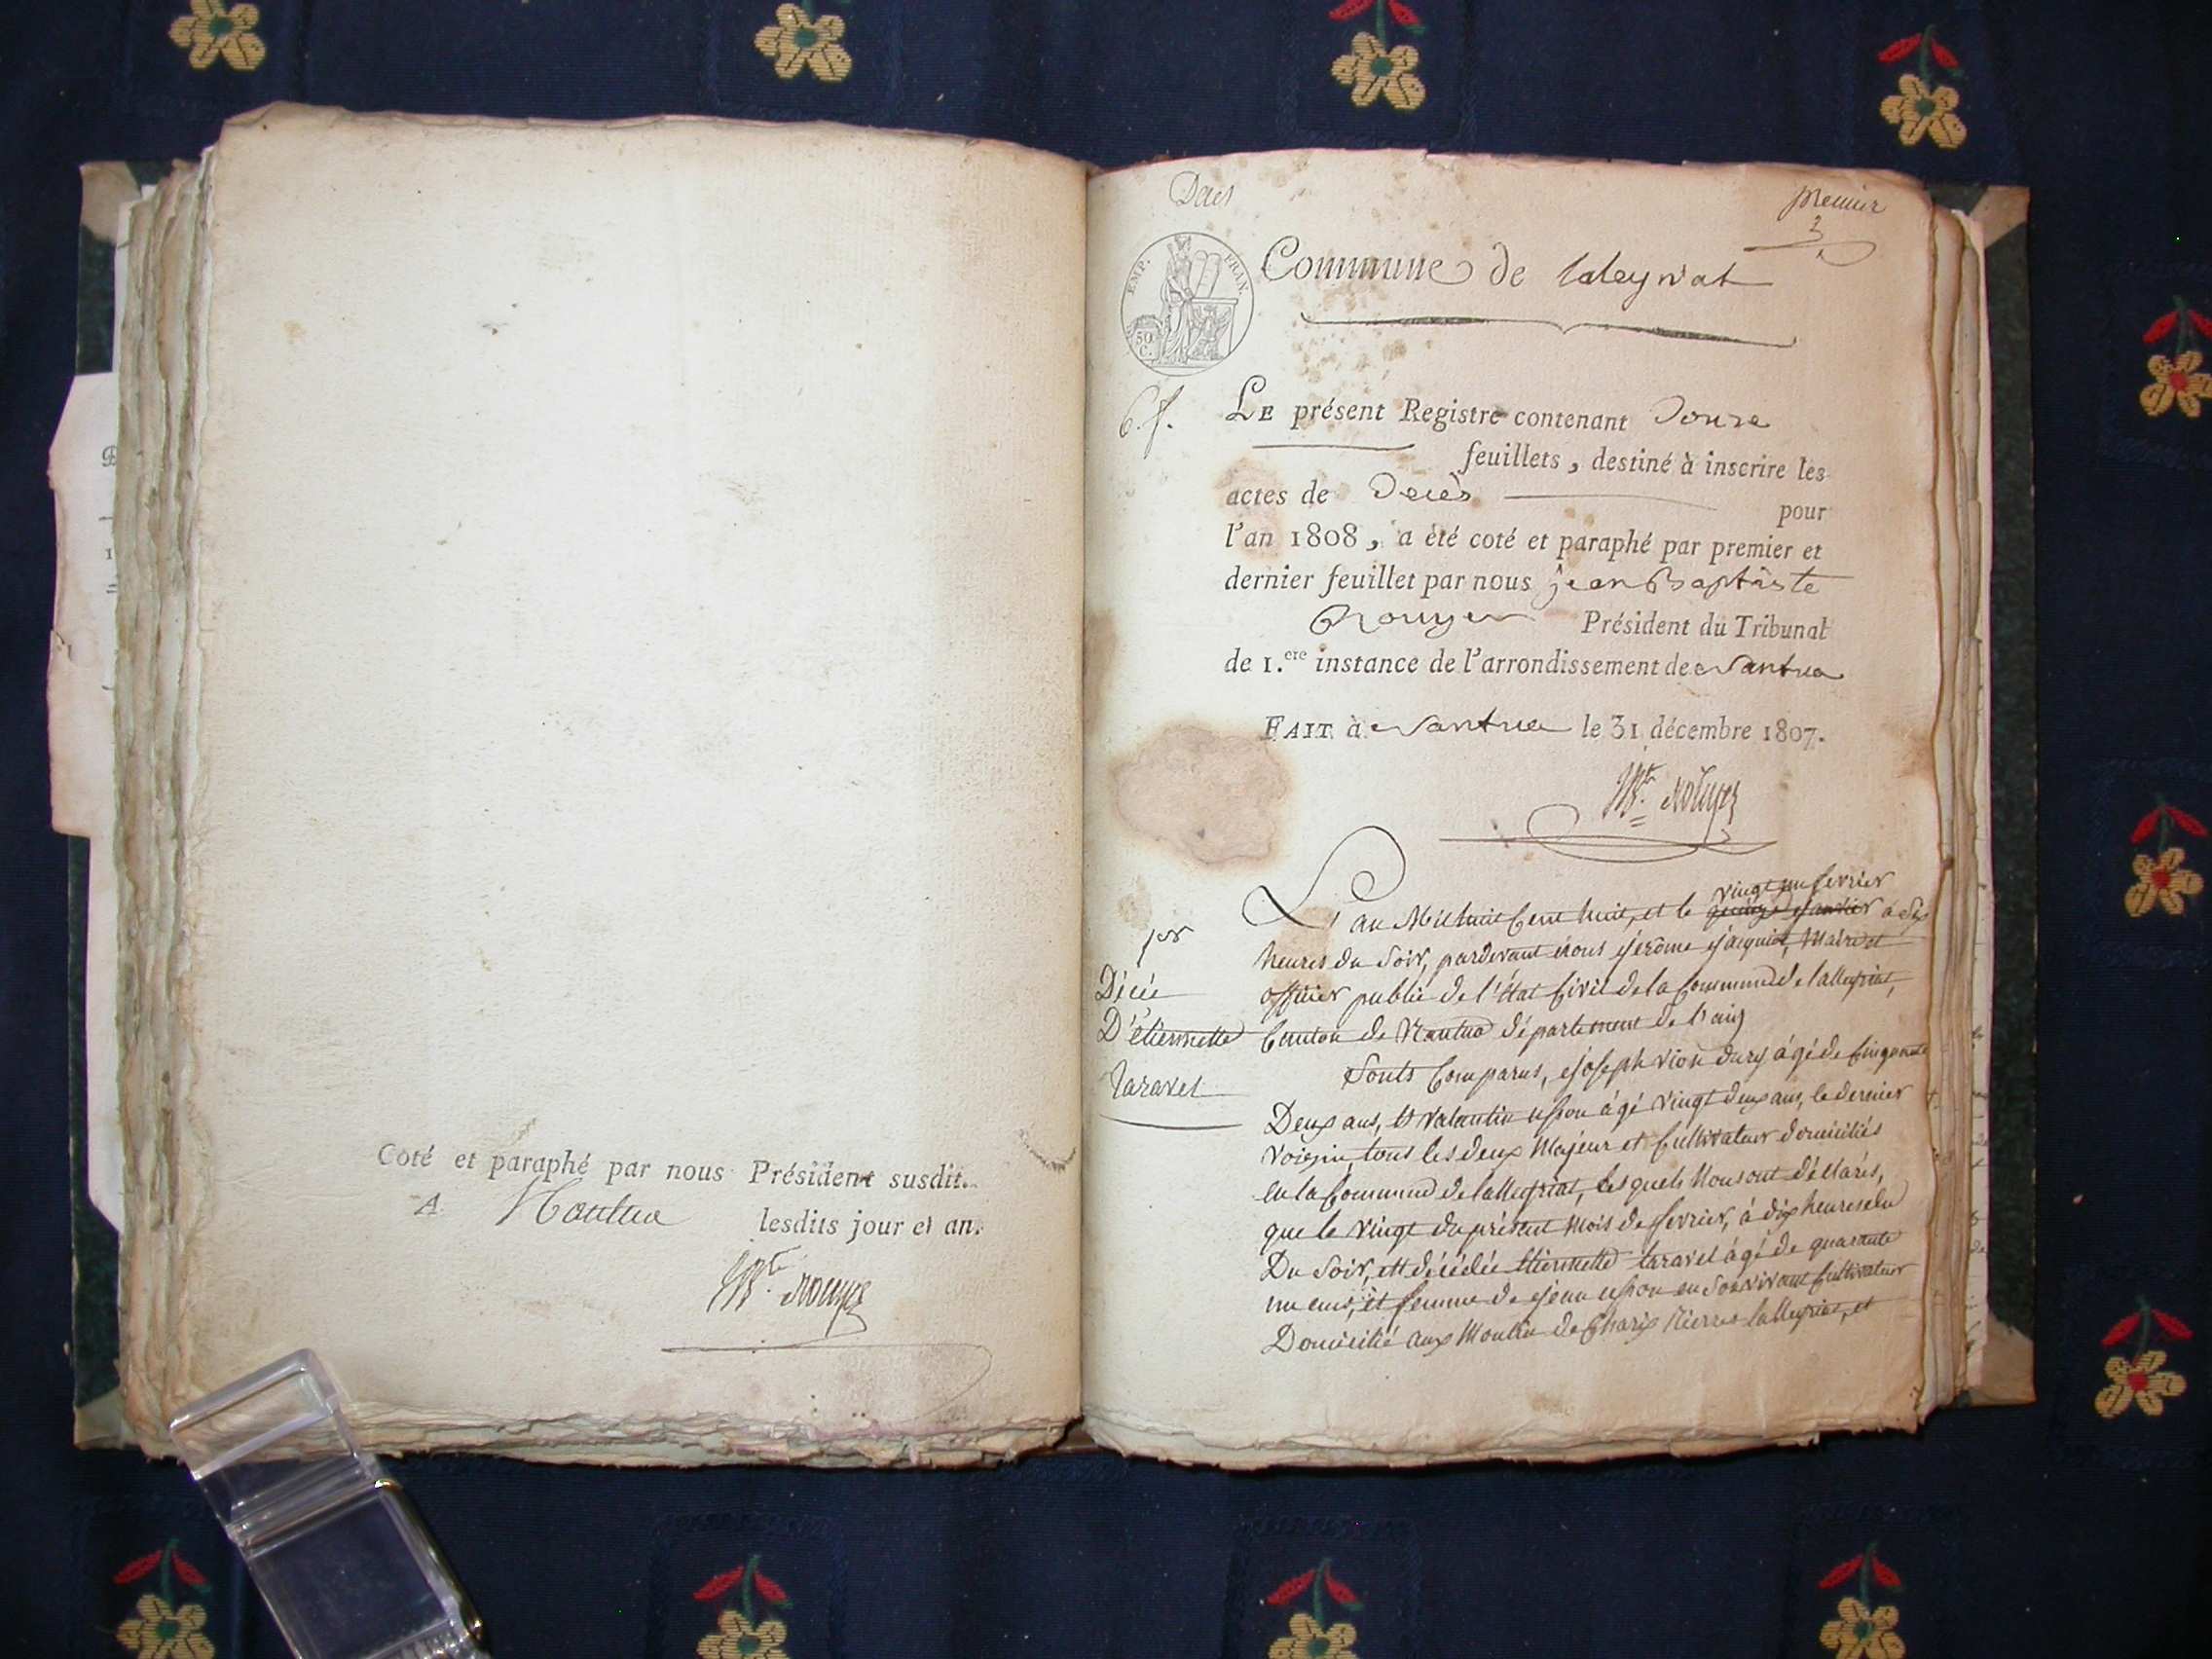 Coté et paraphé par nous Président susdit.
A Nantua lesdits jour et an.
Bte. Rouyer
Déces
premier
EMP. FRAN.
50 C.
Commune de laleyriat
6. f.
LE présent Registre contenant Douze
feuillets, destiné à inscrire les
actes de Décès pour
l'an 1808, a été coté et paraphé par premier et
dernier feuillet par nous jean Baptiste
Rouyer Président du Tribunal
de 1.ere instance de l'arrondissement de Nantua
FAIT à Nantua le 31 décembre 1807.
Bte. Rouyer
1er
Décée
D'étiennette
taravel
vingt un fevrier
L'an Mil huit Cent huit, et le quinze janvier à Six
heures du Soir, pardevant nous jerôme jacquiot, Maire et
officier public de l'état Civil de la Commune de lalleyriat,
Canton de Nantua département de l'ain
Sonts Comparus, joseph vion dury âgé de Cinquante
Deux ans, et valantin upon âgé vingt deux ans, le dernier
voisin, tous les deux Majeur et Cultivateur domiciliés
en la Commune de lalleyriat, les quels Nous ont déclarés,
que le vingt du présent mois de fevrier, à dix heures du
Du Soir, est décédée Etiennette taravel âgé de quarante
un ens, et femme de jean upon en Son vivant Cultivateur
Domicilié aux Moulin de Charix Rierre lalleyriat, et